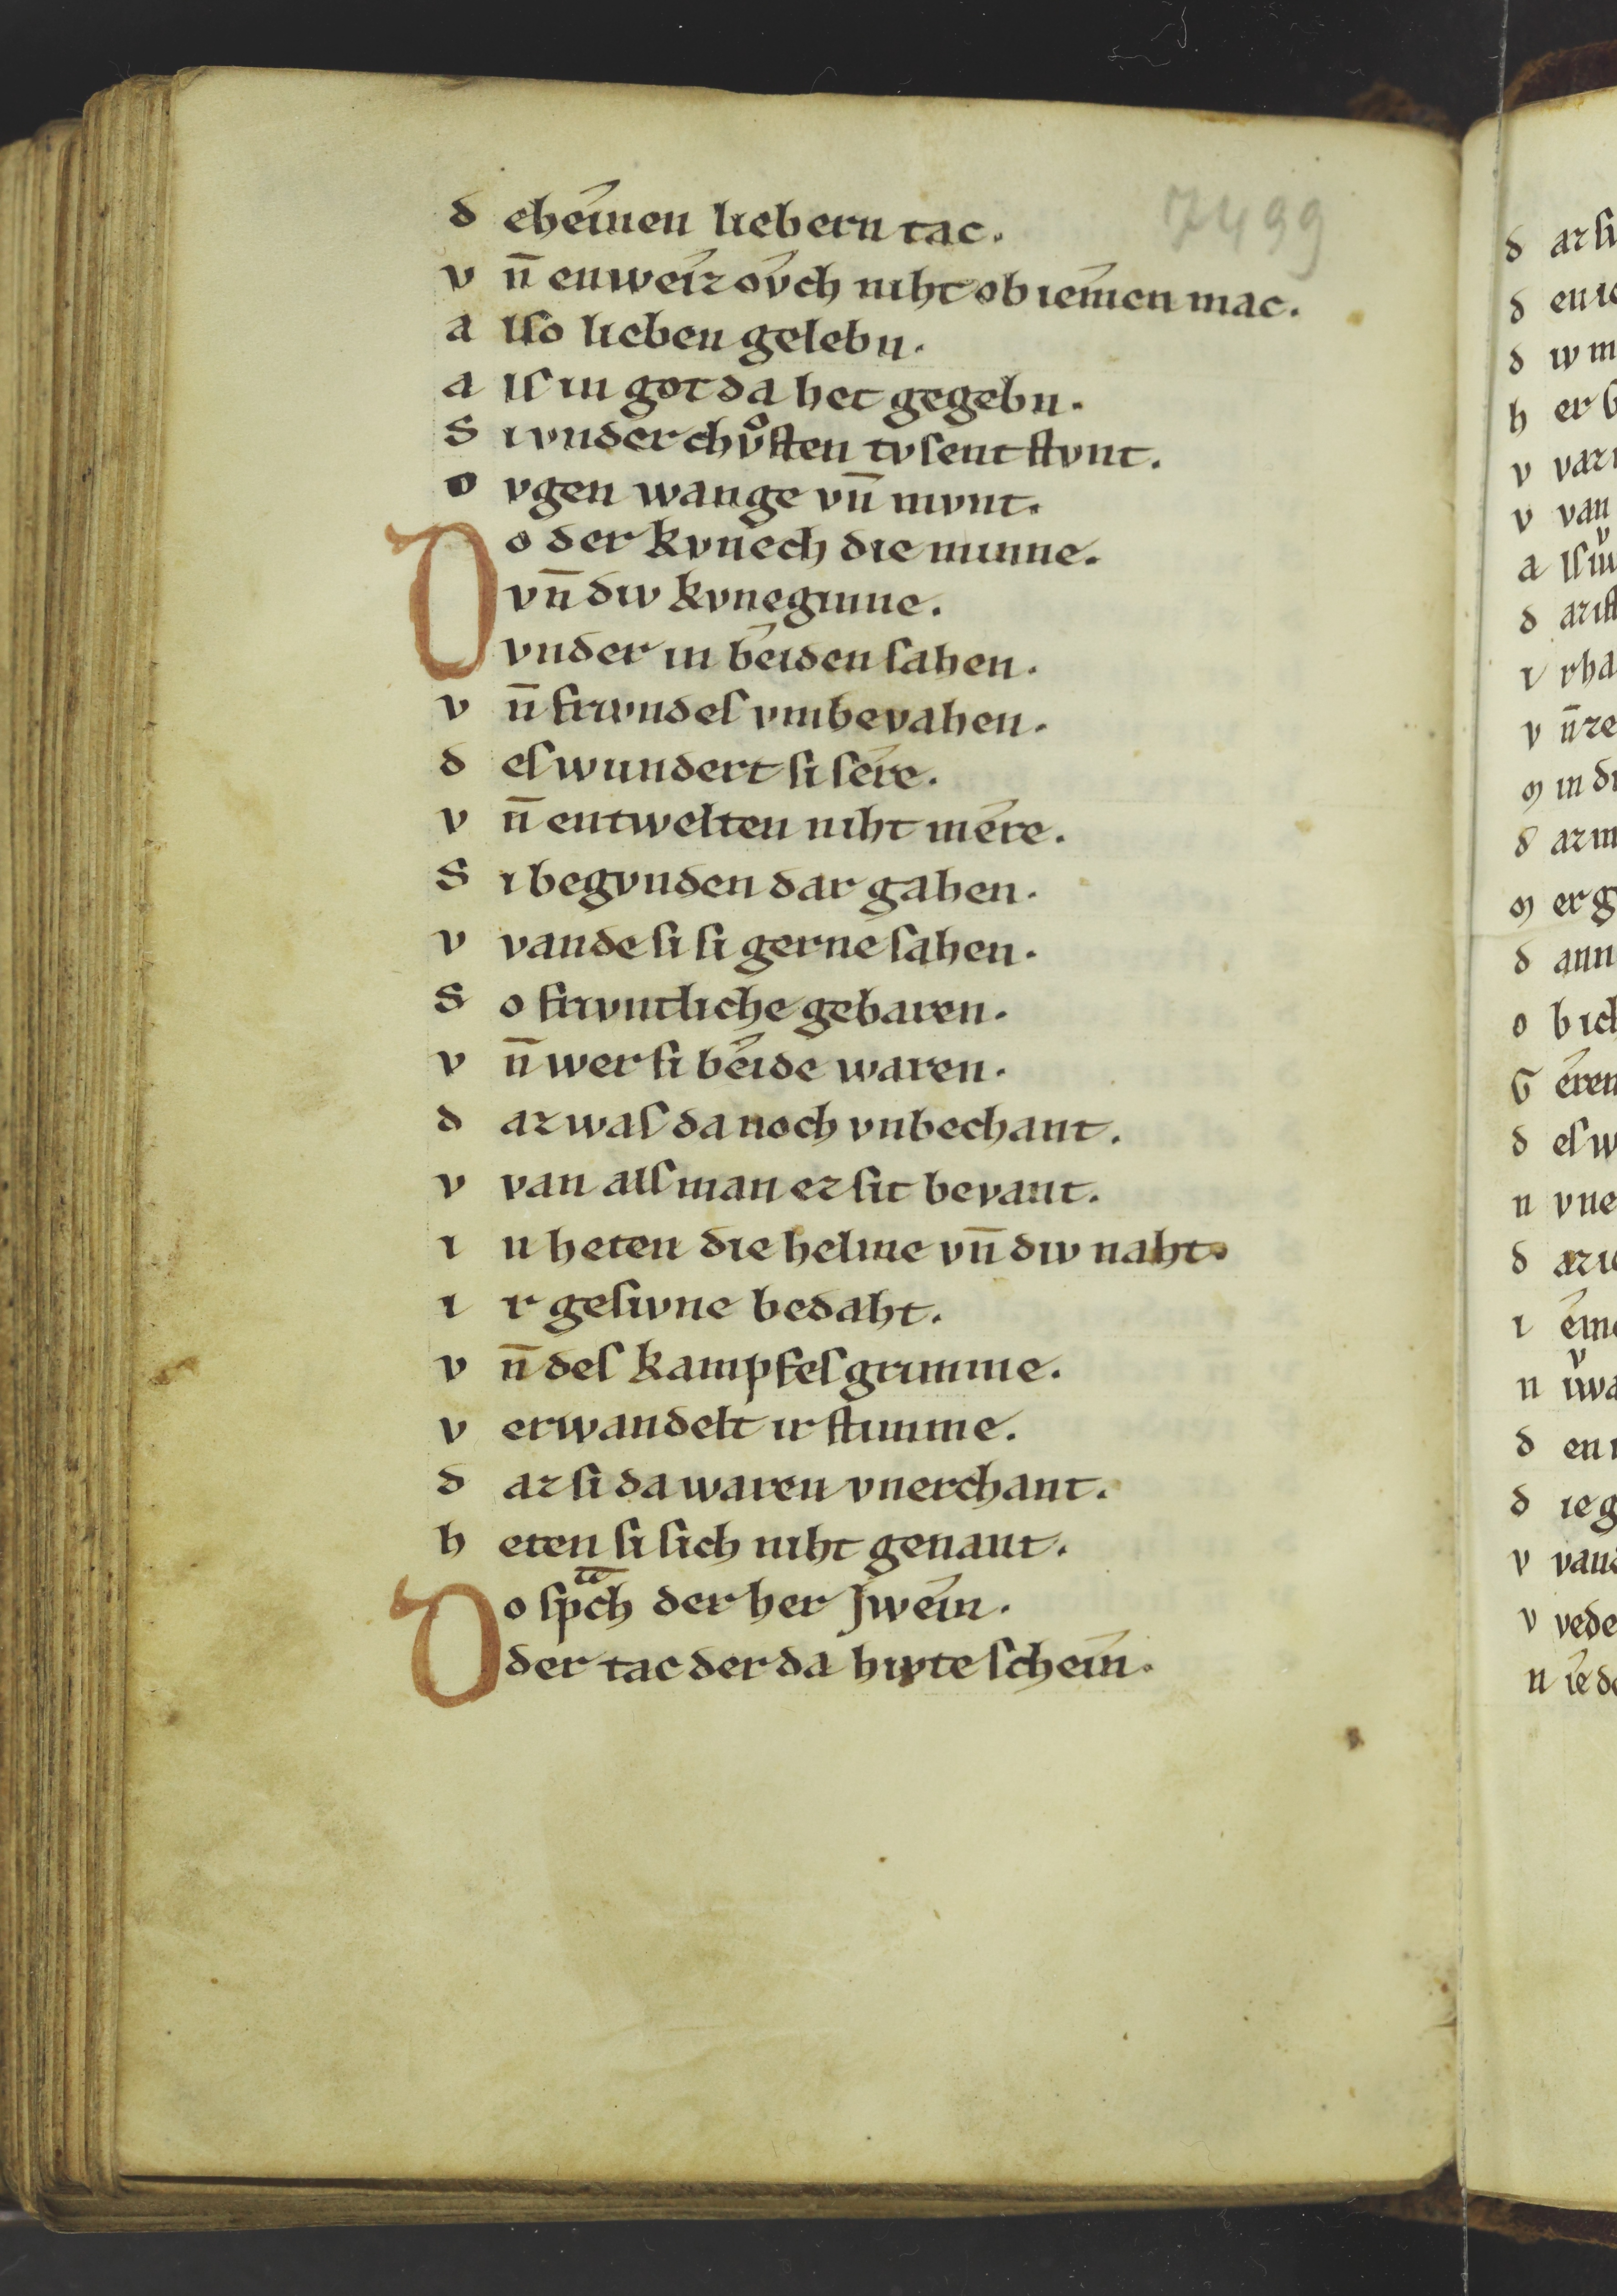 7499
d eheínen liebern tac.
v n̄ enweíz oͮch niht ob iemen mac.
a lſo lieben gelebn.
a lſ in got da het gegebn.
S i vnder chvͦſten tvſent ſtvnt.
o vgen wange vn̄ mvnt.
Do der kvnech die minne.
vn̄ div kvneginne.
vnder in beíden ſahen.
v n̄ frivndeſ vmbevahen.
d eſ wundert ſi ſére.
v n̄ entwelten niht mére.
S i begvnden dar gahen.
v vande ſi ſi gerne ſahen.
S o frivntliche gebaren.
v n̄ wer ſi beíde waren.
d az waſ da noch vnbechant.
v van alſ man ez ſit bevant.
i n heten die helme vn̄ div naht.
i r geſivne bedaht.
v n̄ deſ kampfeſ grimme.
v erwandelt ir ſtimme.
d az ſi da waren vnerchant.
h eten ſi ſich niht genant.
Do ſpͣch der her Jweín.
der tac der da hivte ſcheín.
d az ſi
d en
d iv
h er
v var
v van
a lſ
d az iſt
i rha
v n̄ ze
m in
d az
m er g
d ann
o b ich
G éren
d eſ w
n vne
d az
i
n
d en
d ie g
v vand
v vede
n